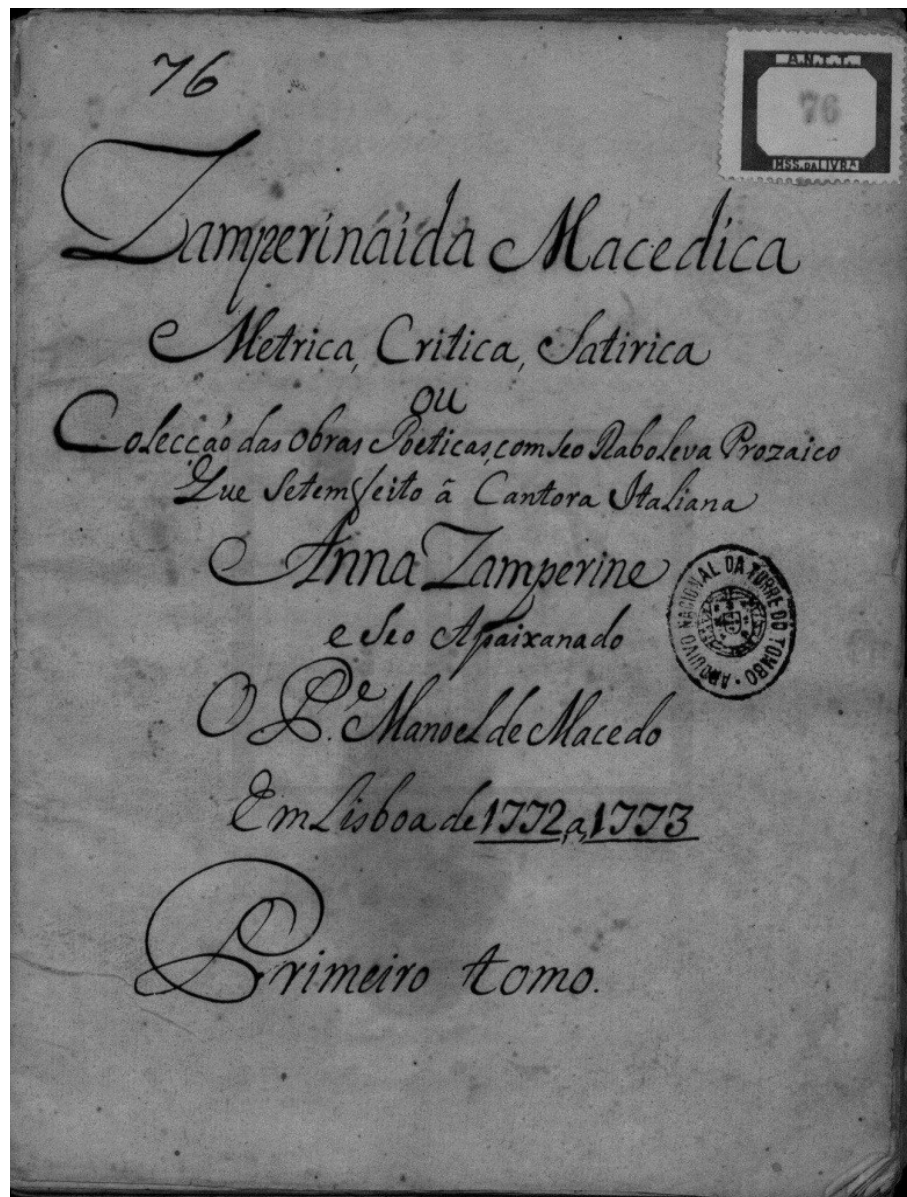 76
A.N.T.T.
76
MSS. DA LIVRA
Zamperináida Macedica
Metrica, Critica, Satirica
ou
Colecção das Obras Poeticas, com seo Raboleva Prozaico
Que Setem feito â Cantora Italiana
Anna Zamperine
e Seo Apaixanado
O P.e Manoel de Macedo
Em Lisboa de 1772 a 1773
ARQUIVO NACIONAL DA TORRE DO TOMBO
Primeiro tomo.